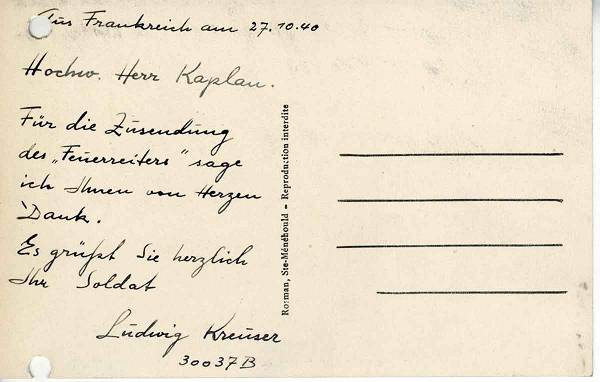 Aus Frankreich am 27.10.40
Hochw. Herr Kaplan.
Für die Zusendung
des „Feuerreiters" sage
ich Ihnen von Herzen
Dank.
Es grüßt Sie herzlich
Ihr Soldat
Ludwig Kreuser
30037B
Rozman, Ste-Ménéhould - Reproduction interdite